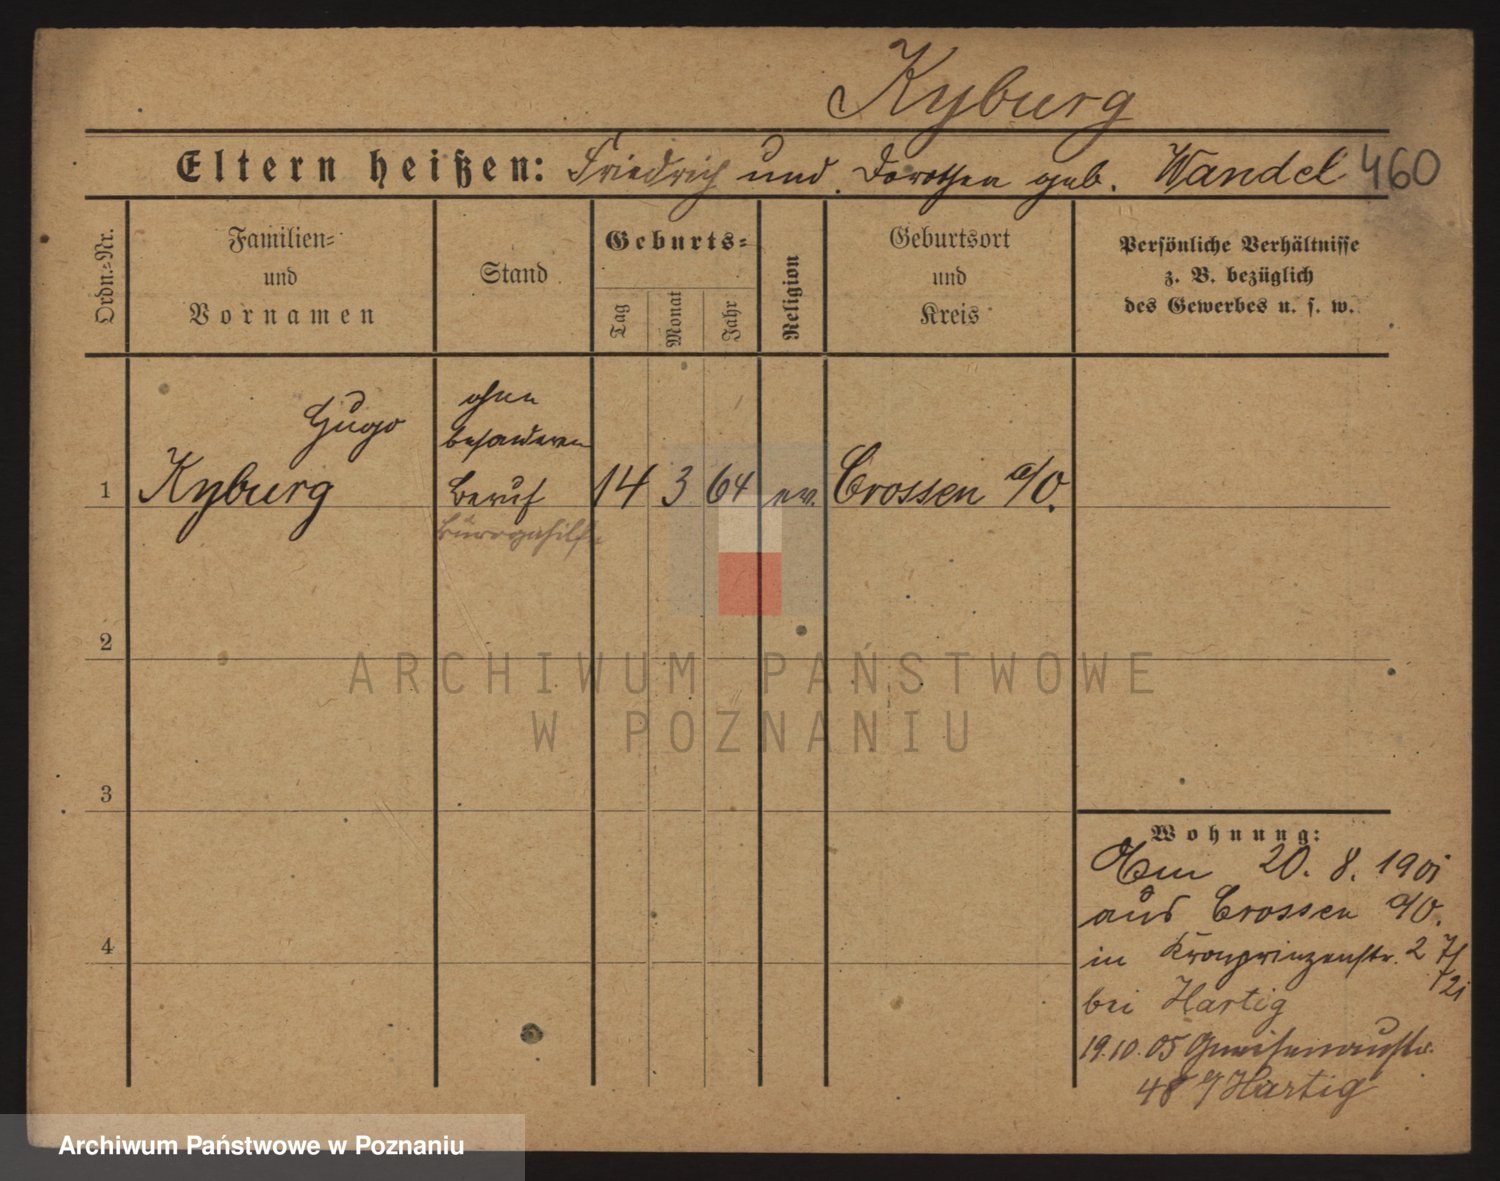 Kyburg
Eltern heißen: Friedrich und Dorothea geb. Wandel 460
Ordn.-Nr.
Familien-
und
Vornamen
Stand
Geburts-
Tag
Monat
Jahr
Religion
Geburtsort
und
Kreis
Persönliche Verhältnisse
z. B. bezüglich
des Gewerbes u. s. w.
Hugo
ohne
besonderen
1 Kyburg Beruf 14 3 64 ev. Crossen a/O.
Bürogehilfe
2
ARCHIWUM PAŃSTWOWE
W POZNANIU
3
Wohnung:
Am 20. 8. 1901
aus Crossen a/O.
4
in Kronprinzenstr. 2
bei Hartig
19.10.05 Gneisenaustr.
48 Hartig
Archiwum Państwowe w Poznaniu